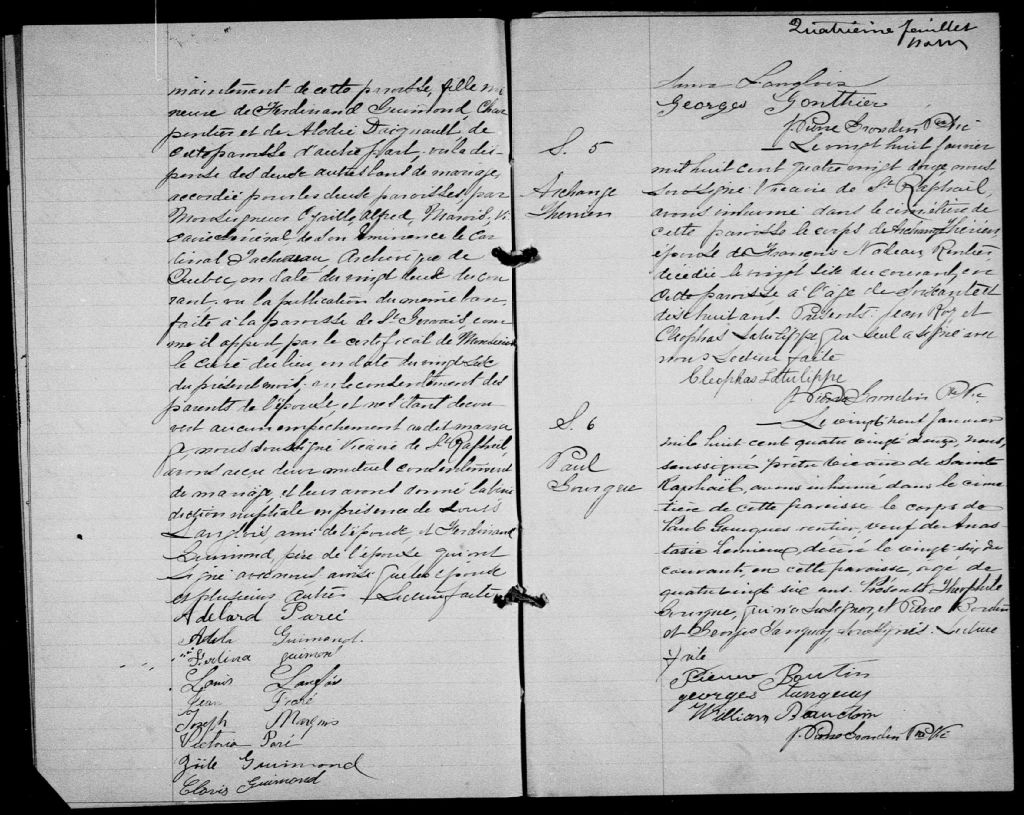 maintenant de cette paroisse, fille mi-
neure de Ferdinand Guimond, Char-
pentier et de Elodie Daigneault, de
cette paroisse d'autre part, vu la dis-
pense des deux autres bans de mariage,
accordée pour les deux paroisses, par
Monseigneur Cyrille, Alfred, Marois, Vi-
caire Général de Son Eminence le Car-
dinal Taschereau Archevêque de
Québec, en date du vingt deux du cou-
rant, vu la publication du même ban
faite à la paroisse de St Gervais, com-
me il appert par le certificat de Monsieur
le curé du lieu, en date du vingt-six
du présent mois, vu le consentement des
parents de l'épouse et ne s'étant décou-
vert aucun empêchement au dit maria-
ge, nous soussigné Vicaire de St Raphaël,
avons reçu leur mutuel consentement
de mariage, et leur avons donné la béné-
diction nuptiale en présence de Louis
Langlois ami de l'époux, et Ferdinand
Guimond, père de l'épouse qui ont
signé avec nous, ainsi que les époux
et plusieurs autres. Lecture faite
Adelard Paré
Adela Guimond.
Guimond
Louis Langlois
Jean
Joseph
Victoria Paré
Guimond
Clovis Guimond
Quatrième feuillet
Langlois
Georges Gonthier
J. Pierre Grondin Ptre Vic
S. 5
Archange
Therrien
Le vingt huit Janvier
mil huit cent quatre vingt douze, nous
soussigné Vicaire de St Raphaël
avons inhumé dans le cimetière de
cette paroisse le corps de Archange Thérrien,
épouse de François Nadeau, Rentier,
décédée le vingt six du courant, en
cette paroisse à l'âge de soixante et
dix huit ans. Présents Jean Roy et
Cléophas Latulippe qui seul a signé avec
nous. Lecture faite
Cleophas Latulippe
J. Pierre Grondin Ptre Vic
S. 6
Paul
Gourgue
Le vingt huit Janvier
mil huit cent quatre vingt douze, nous
soussigné prêtre vicaire de Saint
Raphaël, avons inhumé dans le cime-
tière de cette paroisse le corps de
Paul Gourgues rentier, veuf de Anas-
tasie Lemieux, décédé le vingt-six du
courant, en cette paroisse, agé de
quatre vingt six ans. Présents Theophile
Gourgue, qui n'a su signer, et Pierre
et Georges Tanguay soussignés. Lecture
faite
Pierre Boutin
georges tangeuy
William Beaudoin
J. Pierre Grondin Ptre Vic